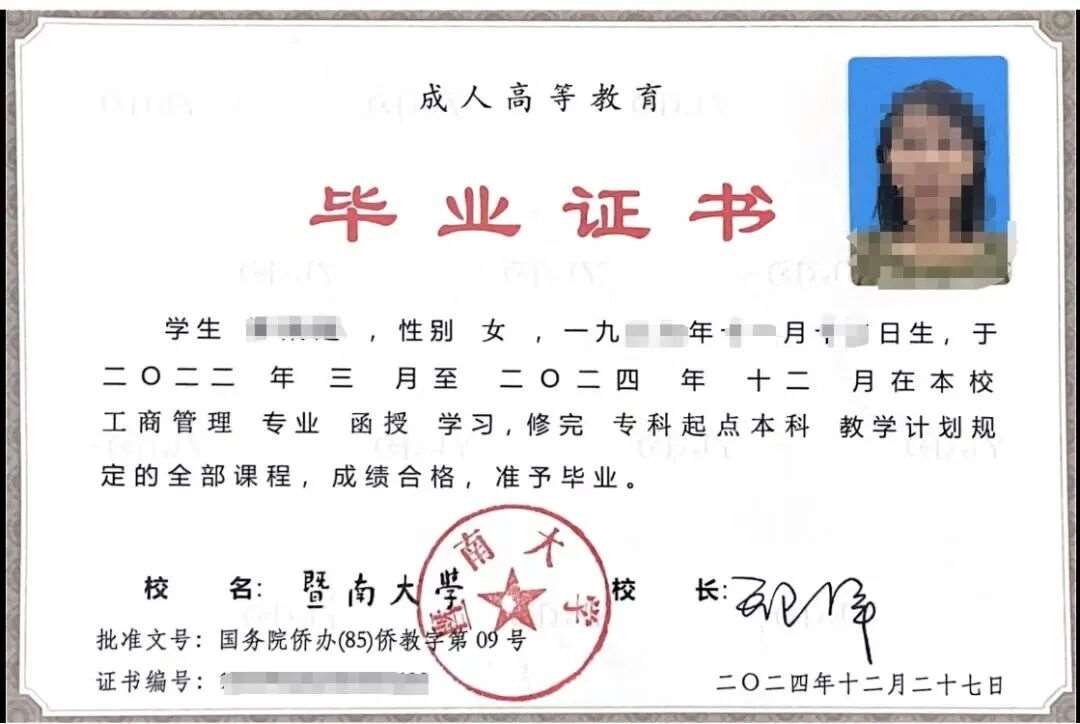 成人高等教育
毕业证书
学生 ，性别 女 ，一九 年十一月十 日生，于
二〇二二 年 三 月至 二〇二四 年 十二 月在本校
工商管理 专业 函授 学习，修完 专科起点本科 教学计划规
定的全部课程，成绩合格，准予毕业。
校 名：暨南大学 校 长：
暨南大学
批准文号：国务院侨办(85)侨教字第 09 号
证书编号：
二〇二四年十二月二十七日